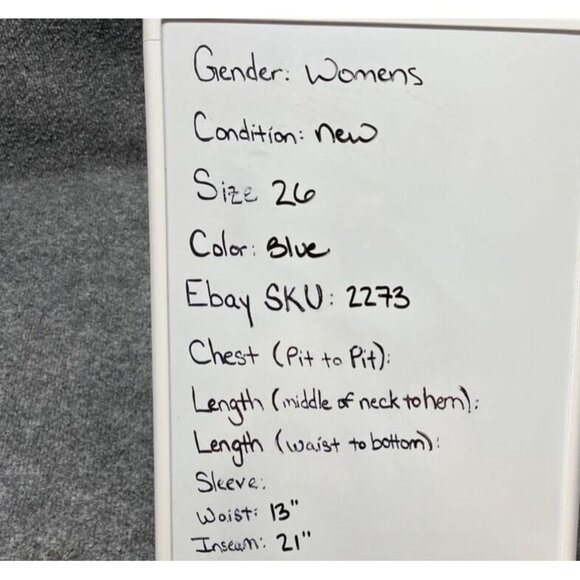 Gender: Womens
Condition: new
Size 26
Color: Blue
Ebay SKU: 2273
Chest (Pit to Pit):
Length (middle of neck to hem):
Length (waist to bottom):
Sleeve:
Waist: 13"
Inseam: 21"